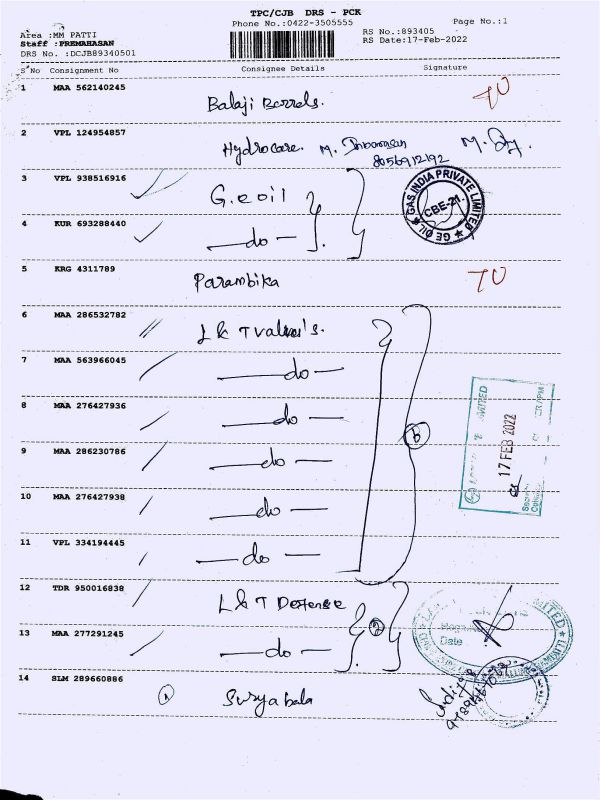 TPC/CJB DRS - PCK
Phone No.:0422-3505555 Page No.:1
Area :MM PATTI RS No.:893405
Staff :PREMAHASAN RS Date:17-Feb-2022
DRS No. :DCJB89340501
S'No Consignment No Consignee Details Signature
1 MAA 562140245 Balaji Barrels.
2 VPL 124954857 Hydrocare. M.
8056912192
3 VPL 938516916 G.e oil
GE OIL & GAS INDIA PRIVATE LIMITED
CBE-21.
4 KUR 693288440 —do—
5 KRG 4311789 Parambika
6 MAA 286532782 L & T Valves's.
7 MAA 563966045 —do—
8 MAA 276427936 —do—
9 MAA 286230786 —do—
10 MAA 276427938 —do—
11 VPL 334194445 —do—
6
17 FEB 2022
12 TDR 950016838 L & T Defense
13 MAA 277291245 —do—
2
Date
14 SLM 289660886 1 Suryabala